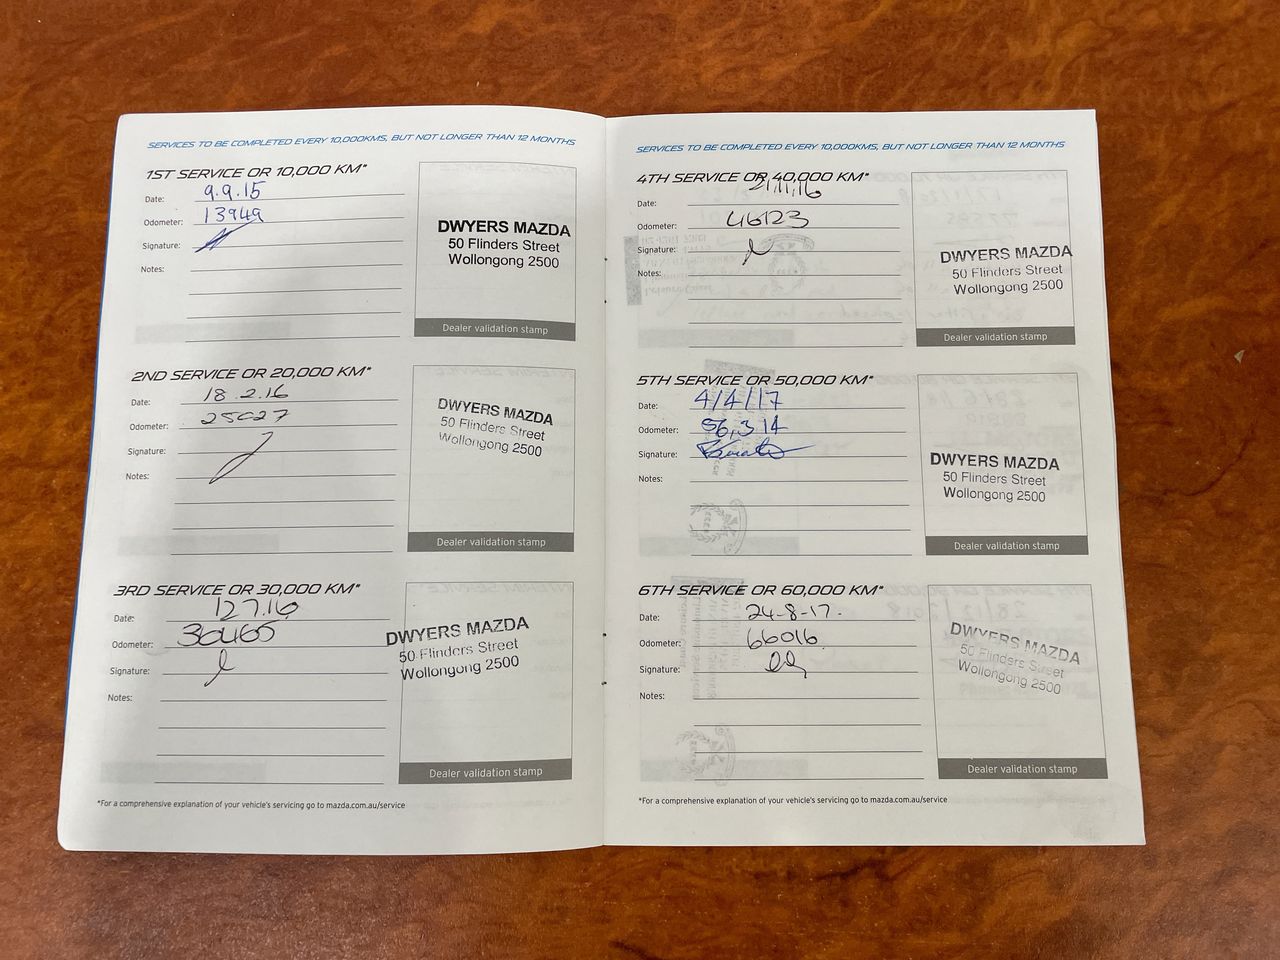 SERVICES TO BE COMPLETED EVERY 10,000KMS, BUT NOT LONGER THAN 12 MONTHS
1ST SERVICE OR 10,000 KM*
Date: 9.9.15
Odometer: 13949
Signature:
Notes:
DWYERS MAZDA
50 Flinders Street
Wollongong 2500
Dealer validation stamp
2ND SERVICE OR 20,000 KM*
Date: 18.2.16
Odometer: 25027
Signature:
Notes:
DWYERS MAZDA
50 Flinders Street
Wollongong 2500
Dealer validation stamp
3RD SERVICE OR 30,000 KM*
Date: 12.7.16
Odometer: 36465
Signature:
Notes:
DWYERS MAZDA
50 Flinders Street
Wollongong 2500
Dealer validation stamp
*For a comprehensive explanation of your vehicle's servicing go to mazda.com.au/service
SERVICES TO BE COMPLETED EVERY 10,000KMS, BUT NOT LONGER THAN 12 MONTHS
4TH SERVICE OR 40,000 KM*
Date: 21/11/16
Odometer: 46123
Signature:
Notes:
DWYERS MAZDA
50 Flinders Street
Wollongong 2500
Dealer validation stamp
5TH SERVICE OR 50,000 KM*
Date: 4/4/17
Odometer: 56,314
Signature:
Notes:
DWYERS MAZDA
50 Flinders Street
Wollongong 2500
Dealer validation stamp
6TH SERVICE OR 60,000 KM*
Date: 24-8-17.
Odometer: 66016
Signature:
Notes:
DWYERS MAZDA
50 Flinders Street
Wollongong 2500
Dealer validation stamp
*For a comprehensive explanation of your vehicle's servicing go to mazda.com.au/service